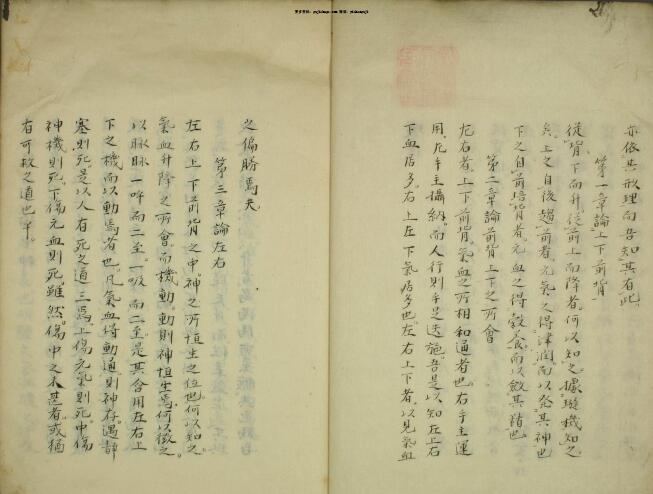 亦依其形理而告知其有此
第一章論上下前背
從背下而升從前上而降者。何以知之。據璇機知之
矣。上之自後趨前者。元氣之得津潤。而以發其神也
下之自前培背者。元血之得穀養。而以斂其諸也
第二章論前背上下之所會
左右者。上下前背。氣血之所相和通者也。右手主運
用。左手主攝納。而人行則手足迭施。吾是以知左上右
下血居多。右上左下氣居多也。左右上下者。以見氣血
之偏勝焉夫
第三章論左右
左右上下前背之中。神之所恒生之位也。何以知之。
氣血升降之所會。而機動。動則神恒生焉。何以徵之。
以脉。脉一呼而二至。一吸而二至。是其合用左右上
下之機而以動焉者也。凡氣血得動通則神存。遇靜
塞則死。是以人有死之道三焉。上傷元氣則死。中傷
神機則死。下傷元血則死。雖然。傷中之不甚者。或猶
有可救之道也乎。